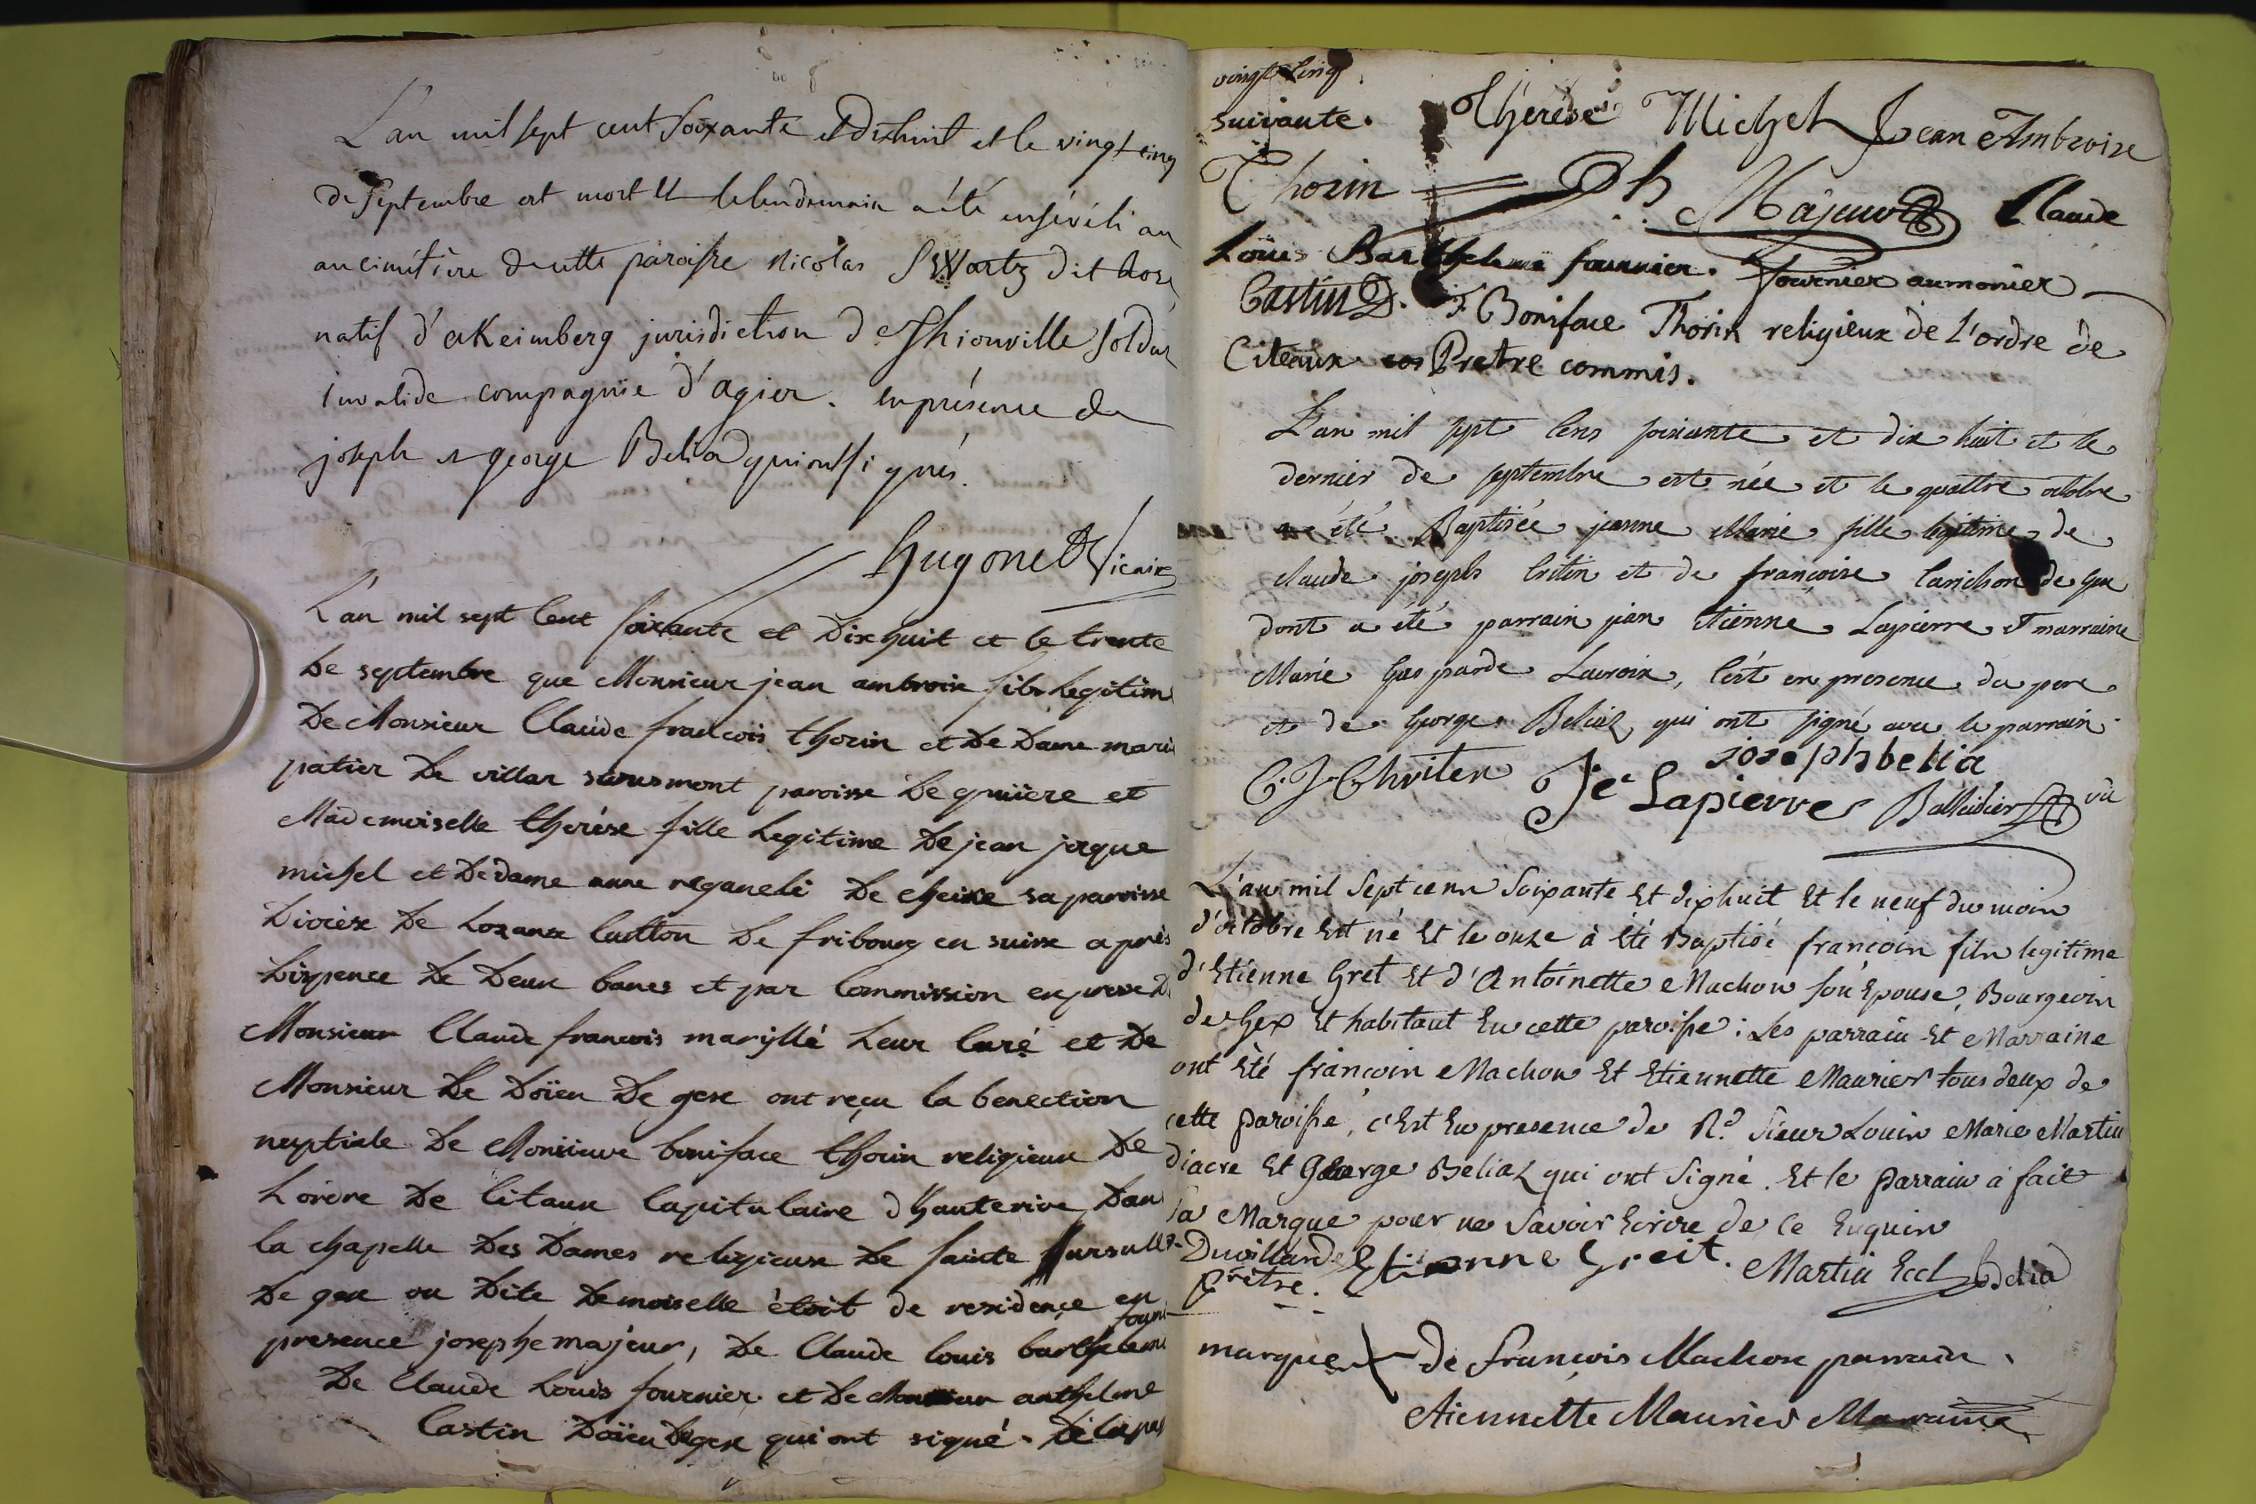 L'an mil sept cent soixante et dixhuit et le vingt cinq
de septembre est mort et le lendemain a été enséveli au
au cimétière de cette paroisse Nicolas SWartz dit
natif d'aKeimberg jurisdiction de Thionville soldat
invalide compagnie d'agier. en présence de
joseph et george Belia qui ont signés.
Hugonet Vicaire
L'an mil sept Cent soixante et Dixhuit et le trente
De septembre que Monsieur jean ambroise fils Legitime
De Monsieur Claude francois thorin et De Dame marie
patier De villar surusmont paroisse De gruiiere et
Mademoiselle therése fille Legitime De jean jorque
michel et De dame anne reganeli De sa paroisse
Diocèse De Lozanne Cantton De fribourg en suisse après
Dispence De Deux banes et par Commission expresse De
Monsieur Claude francois marijllé Leur Curé et De
Monsieur De Doïen De gex ont reçu la benection
nuptiale De Monsieur boniface thorin religieux De
Lordre De Citaux Capitulaire d'Hauterive Dans
la chapelle Des Dames religieuse De sainte ursulle
De gex ou Dite Demoiselle ètoit de residence en
presence josephe majeur, De Claude louis barthelemi fournier
De Claude Louis fournier et De Monsieur anthelme
Castin Doïen De gex qui ont signé.
vingt cinq
suivante. Thérése Michel Jean Ambroise
Thorin Majeur Claude
Louis Barthelemi fournier. fournier aumonier
Castin D. F. Boniface Thorin religieux de L'ordre de
Citeaux Pretre commis.
L'an mil sept Cens soixante et dix huit et le
dernier de septembre est née et le quattre octobre
a été Baptisée jeanne Marie fille légitime de
claude joseph Critin et de françoise Canichon de Gex
dont a été parrain jean Etienne Lapierre et marraine
Marie Gasparde Lacroix, C'est en presence du pere
et de George Beliaz qui ont signé avec le parrain.
josephbelia
C. J. Chriten Je Lapierre
L'an mil Sept cens Soixante Et dixhuit Et le neuf du mois
d'octobre Est né Et le onze à Eté Baptisé françois fils legitime
d'Etienne Gret Et d'Antoinette Machon son Epouse, Bourgeois
de Gex Et habitant En cette paroisse : Les parrain Et Marraine
ont Eté françois Machon Et Etiennette Maurier tous deux de
cette paroisse, c'Est En presence de Rd. Sieur Louis Marie Martin
diacre Et George Beliaz qui ont Signé. Et le Parrain à fait
Sa Marque pour ne Savoir Ecrire de Ce Enquis
Duvillard Etienne Greit. Martin Eccl Belia
Prêtre.
marque de françois Machon parrain.
Etiennette Maurier Marraine